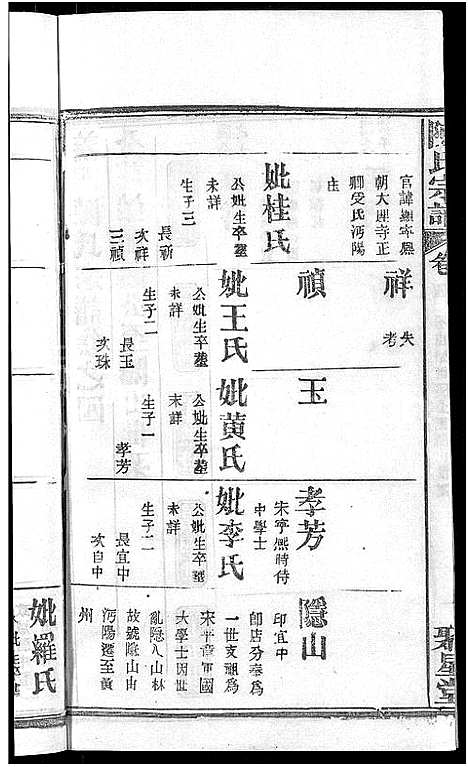 氏宗譜
卷
聚星堂
官諱繼宰熙
朝大理寺正
卿受氏沔陽
庄
妣桂氏
公妣生卒塟
未詳
生子三
長新
次祥
三禎
祥
失
考
禎
妣王氏
公妣生卒塟
未詳
生子二
長玉
次珠
玉
妣黄氏
公妣生卒塟
未詳
生子一
孝芳
孝芳
宋寧熙時侍
中學士
妣李氏
公妣生卒塟
未詳
生子二
長宜中
次自中
隱山
印宜中
卽店分奉爲
一世支祖爲
宋平章軍國
大學士因世
亂隱入山林
故號隱山由
沔陽遷至黃
州
妣羅氏